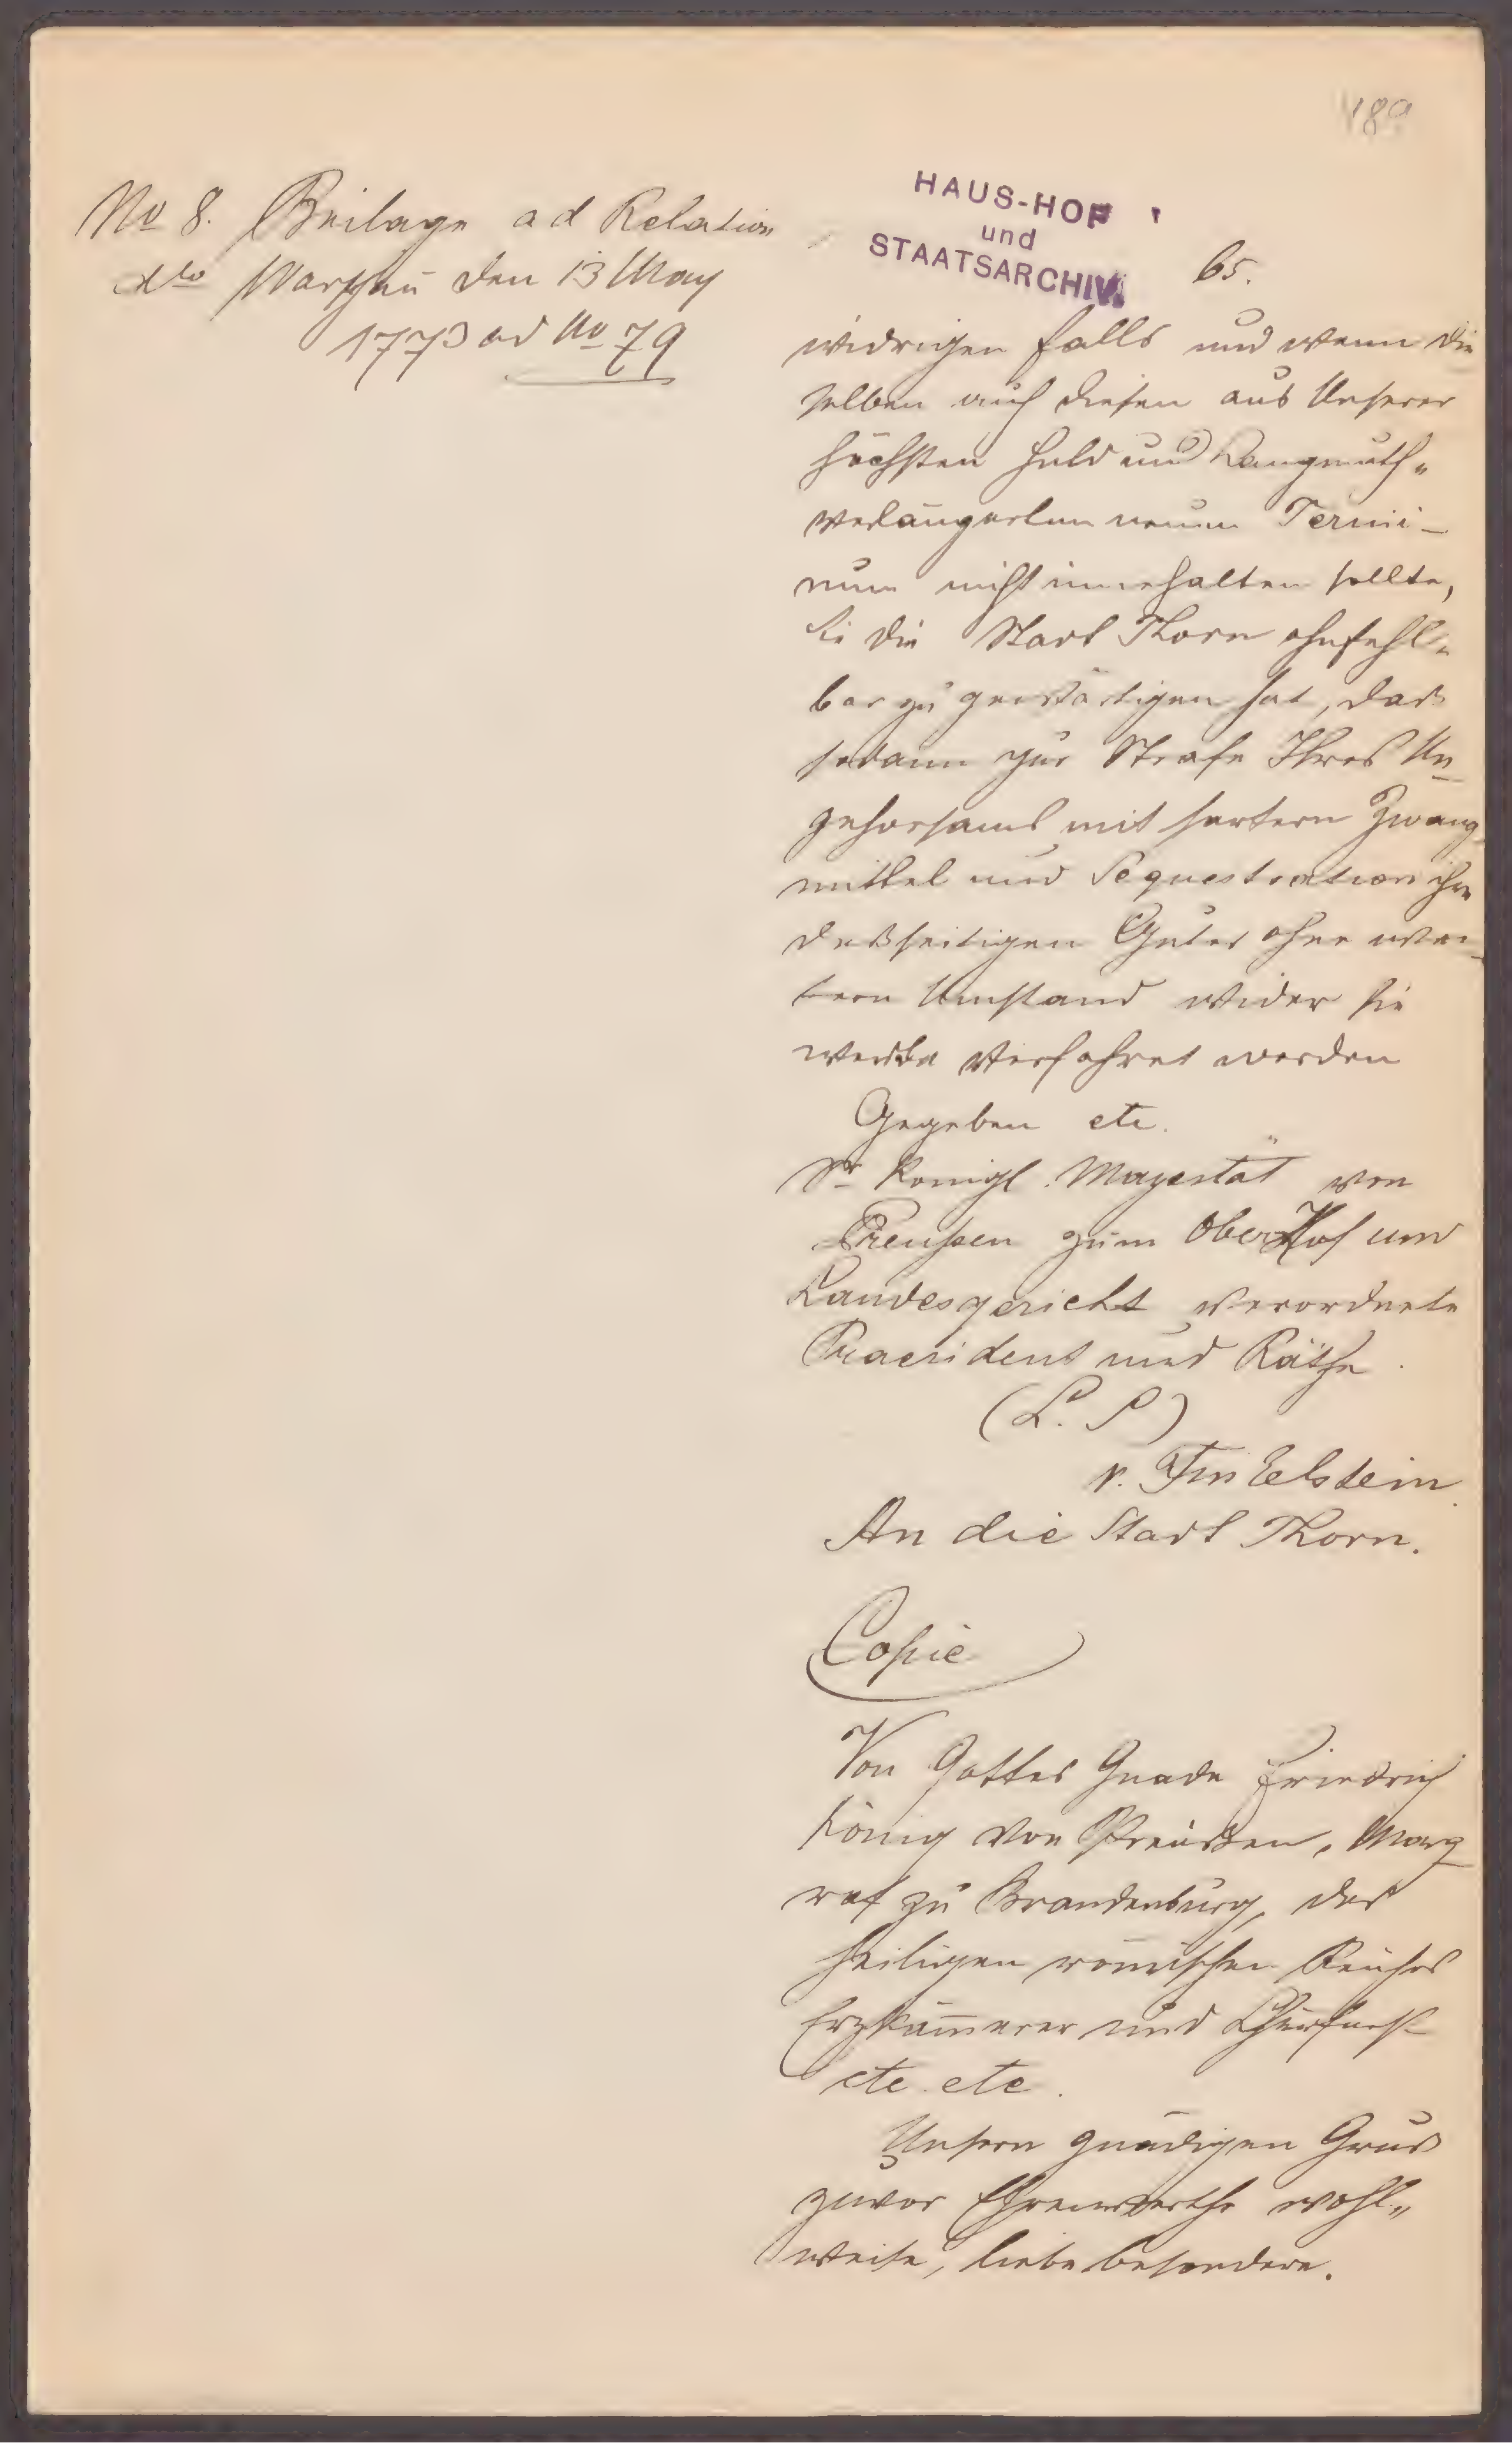 189
No 8. Beilage ad Relation
dto Warschau den 13 May
1773 ad No 79
HAUS-HOF
und
STAATSARCHIV
65.
widrigen Falls und wenn die
selben auch diesen aus Unserer
höchsten Huld und Langmuth„
verlängerten neuen Termi-
num nicht innehalten sollte,
sie die Stadt Thorn ohnfehl„
bar zu gewärtigen hat, daß
sodann zur Strafe Ihres Un-
gehorsams mit hartern Zwang
mittel und Sequestration ihre
deßseitigen Güter ohne wei-
tern Umstand wider sie
werde verfahret werden
Gegeben etc.
Sr Konigl. Mayestät von
Preußen zum Ober Hof und
Landesgericht verordnete
Praesident und Räthe.
(L. S)
v. Finkelstein.
An die Stadt Thorn.
Copie
Von Gottes Gnade Friedrich
König von Preußen, Marg-
raf zu Brandenburg, des
heiligen römischen Reiches
Erzkämmerer und Churfürst
etc. etc.
Unsern gnädigen Gruß
zuvor Ehrenwerthe wohl„
weise, liebe besondere.